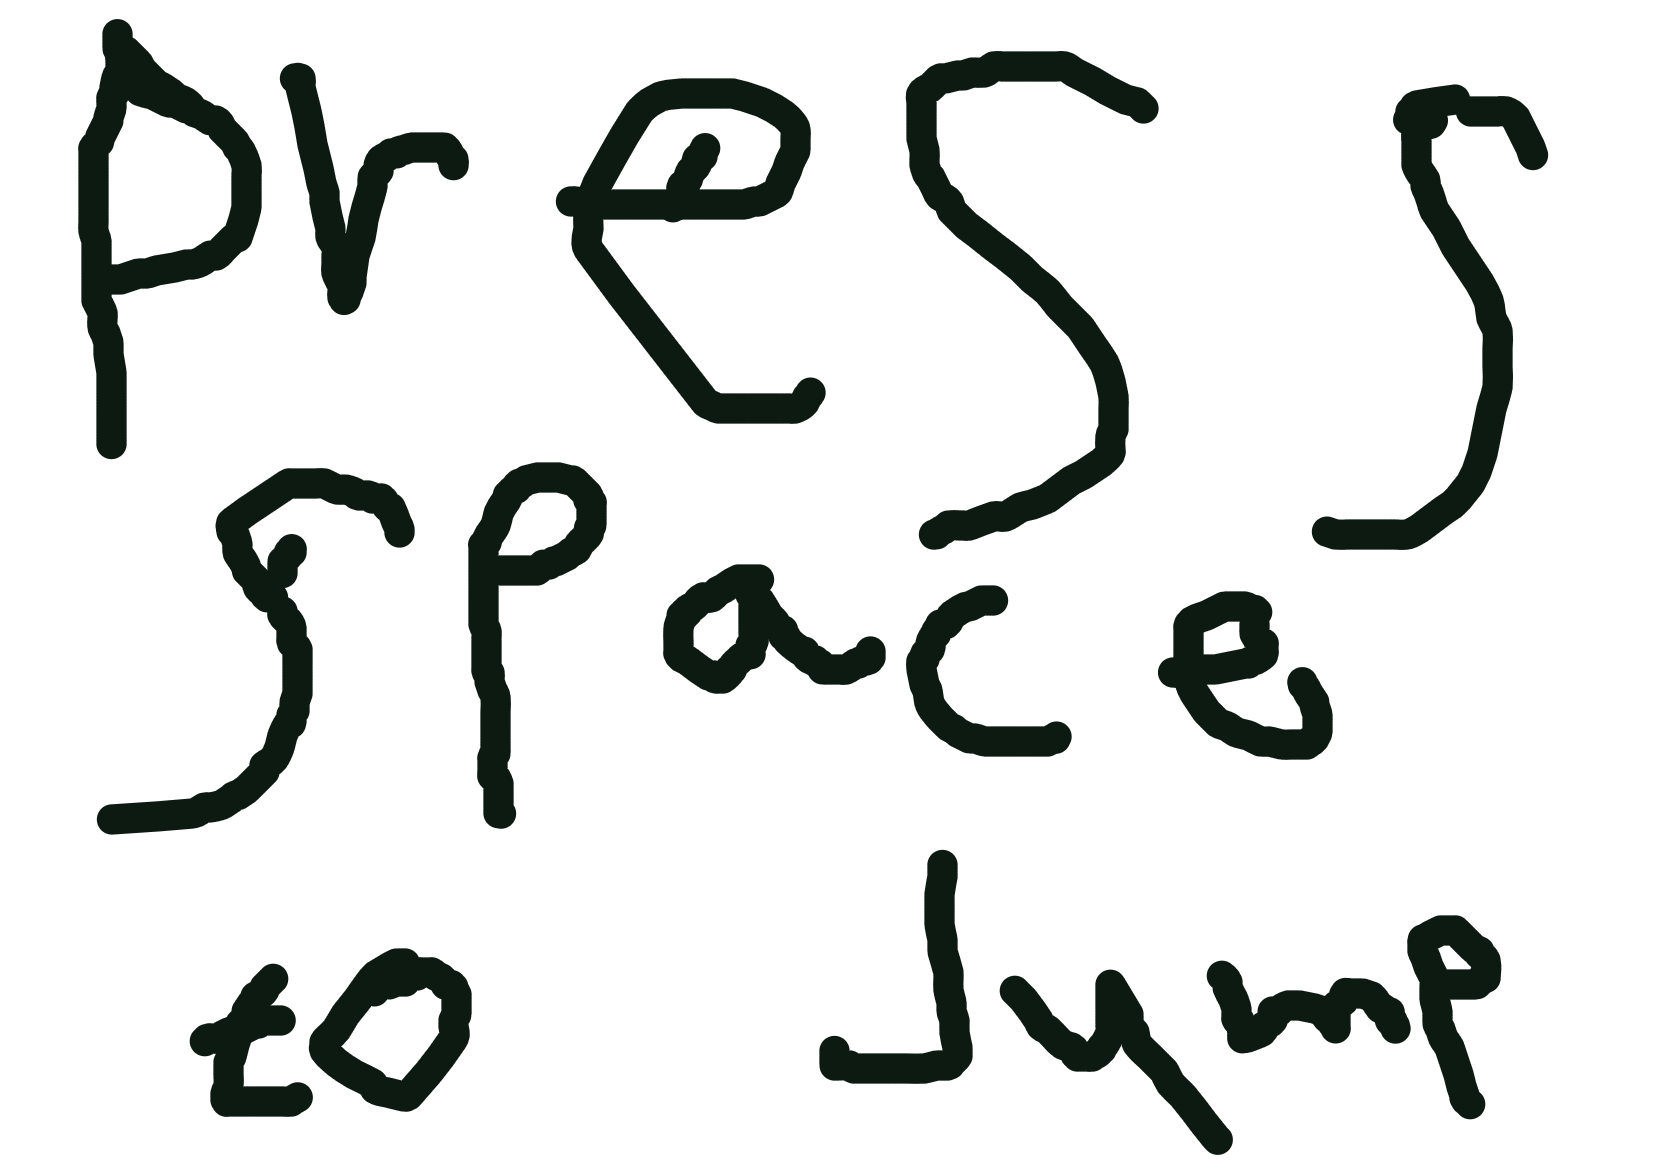 press
space
to Jump